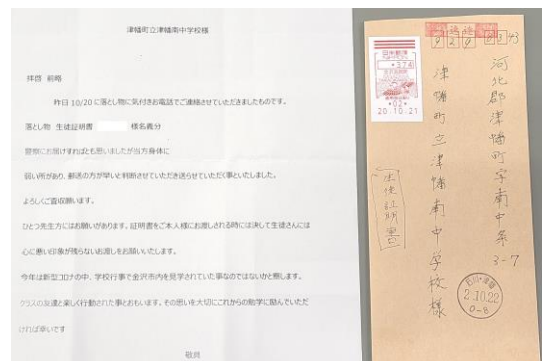 津幡町立津幡南中学校様
拝啓 前略
昨日 10/20 に落とし物に気付きお電話でご連絡させていただきましたものです。
落とし物 生徒証明書 様名義分
警察にお届けすればとも思いましたが当方身体に
弱い所があり、郵送の方が早いと判断させていただき送らせていただく事といたしました。
よろしくご査収願います。
ひとつ先生方にはお願いがあります。証明書をご本人様にお渡しされる時には決して生徒さんには
心に悪い印象が残らないお渡しをお願いいたします。
今年は新型コロナの中、学校行事で金沢市内を見学されていた事なのではないかと察します。
クラスの友達と楽しく行動された事とおもいます。その思いを大切にこれからの勉学に励んでいただ
ければ幸いです
敬具
河北郡津幡町字南中条
3-7
津幡町立津幡南中学校様
生徒証明書
日本郵便
374
20.10.21
2.10.22
0-8